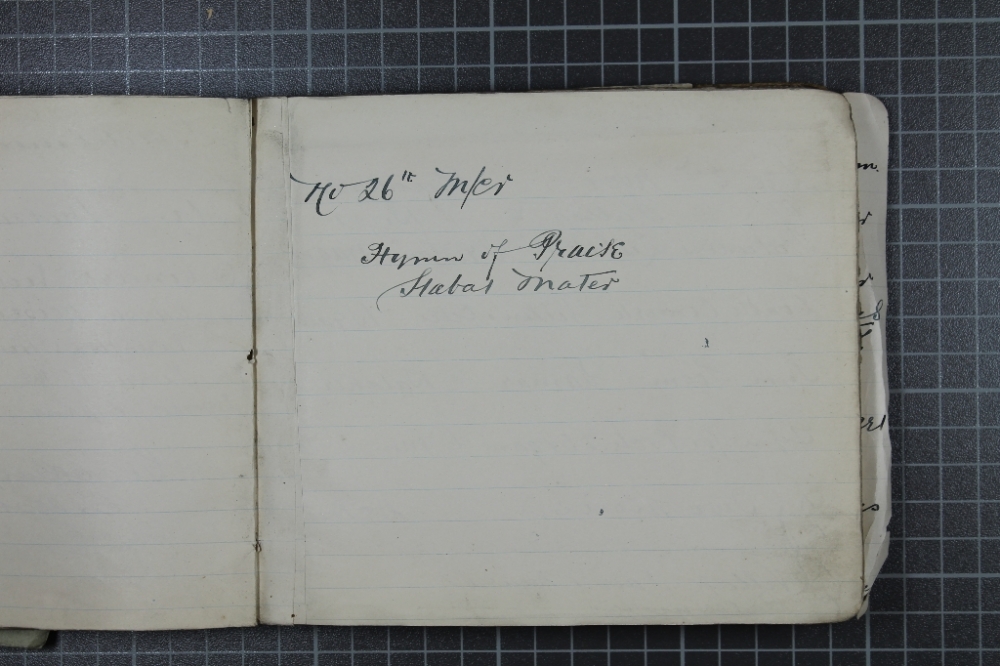 No 26th M/cr
Hymn of Praise
Stabat Mater